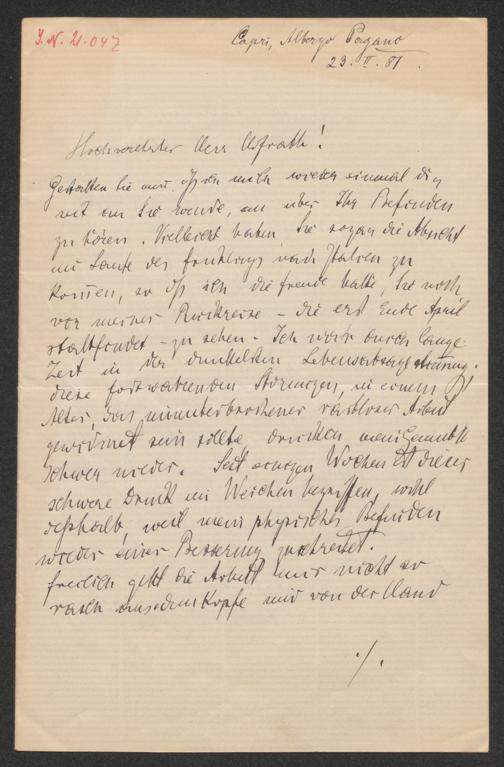 J.N. 21.047
Capri, Albergo Pagano
23. II. 81.
Hochverehrter Herr Hofrath!
Gestatten Sie mir, daß ich mich wieder einmal
mit an Sie wende, um über Ihr Befinden
zu hören. Vielleicht haben Sie sogar die Absicht
im Laufe des Frühlings nach Italien zu
kommen, so daß ich die Freude hätte, Sie noch
vor meiner Rückreise – die erst Ende April
stattfindet – zu sehen. – Ich war durch lange
Zeit in der dunkelsten
diese fortwährenden Störungen, in einem
Alter, das ununterbrochener rastloser Arbeit
gewidmet sein sollte, drücken mein Gemüth
schwer nieder. Seit einigen Wochen ist dieser
schwere Druck im Weichen begriffen, wohl
deßhalb, weil mein physisches Befinden
wieder einer Besserung
freilich geht die Arbeit mir nicht so
rasch aus dem Kopfe und von der Hand
./.